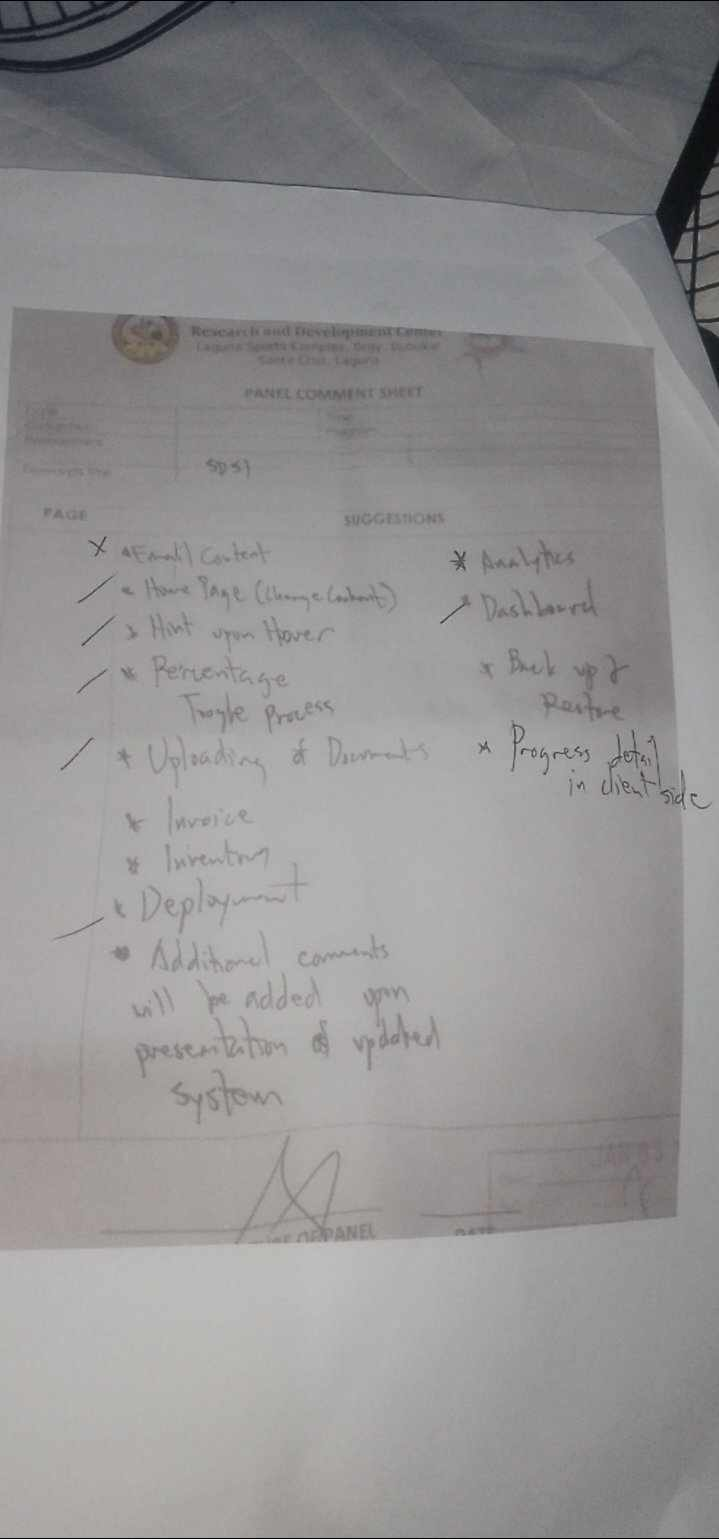 Research and Development Center
Laguna Sports Complex, Brgy. Bubukal
Santa Cruz, Laguna
PANEL COMMENT SHEET
SDS1
PAGE
SUGGESTIONS
* Email Content
* Home Page (Change
* Hint upon Hover
* Percentage
Process
* Uploading of Documents
* Invoice
* Inventory
* Deployment
* Additional comments
will be added upon
presentation of updated
system
* Analytics
* Dashboard
* Back up &
Restore
* Progress detail
in client side
OF PANEL
DATE
JAN